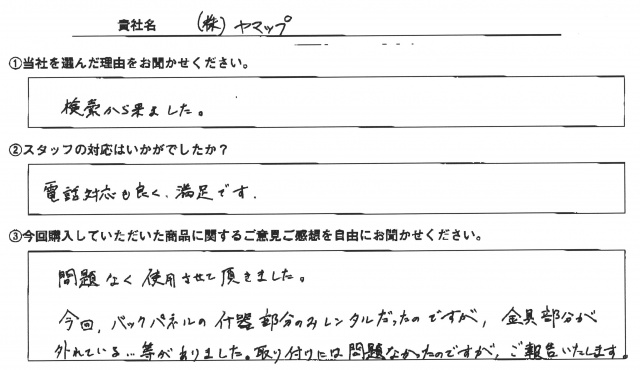 貴社名 (株)ヤマップ
①当社を選んだ理由をお聞かせください。
検索から来ました。
②スタッフの対応はいかがでしたか？
電話対応も良く、満足です.
③今回購入していただいた商品に関するご意見ご感想を自由にお聞かせください。
問題なく使用させて頂きました。
今回、バックパネルの什器部分のみレンタルだったのですが、金具部分が
外れている…等がありました。取り付けには問題なかったのですが、ご報告いたします。